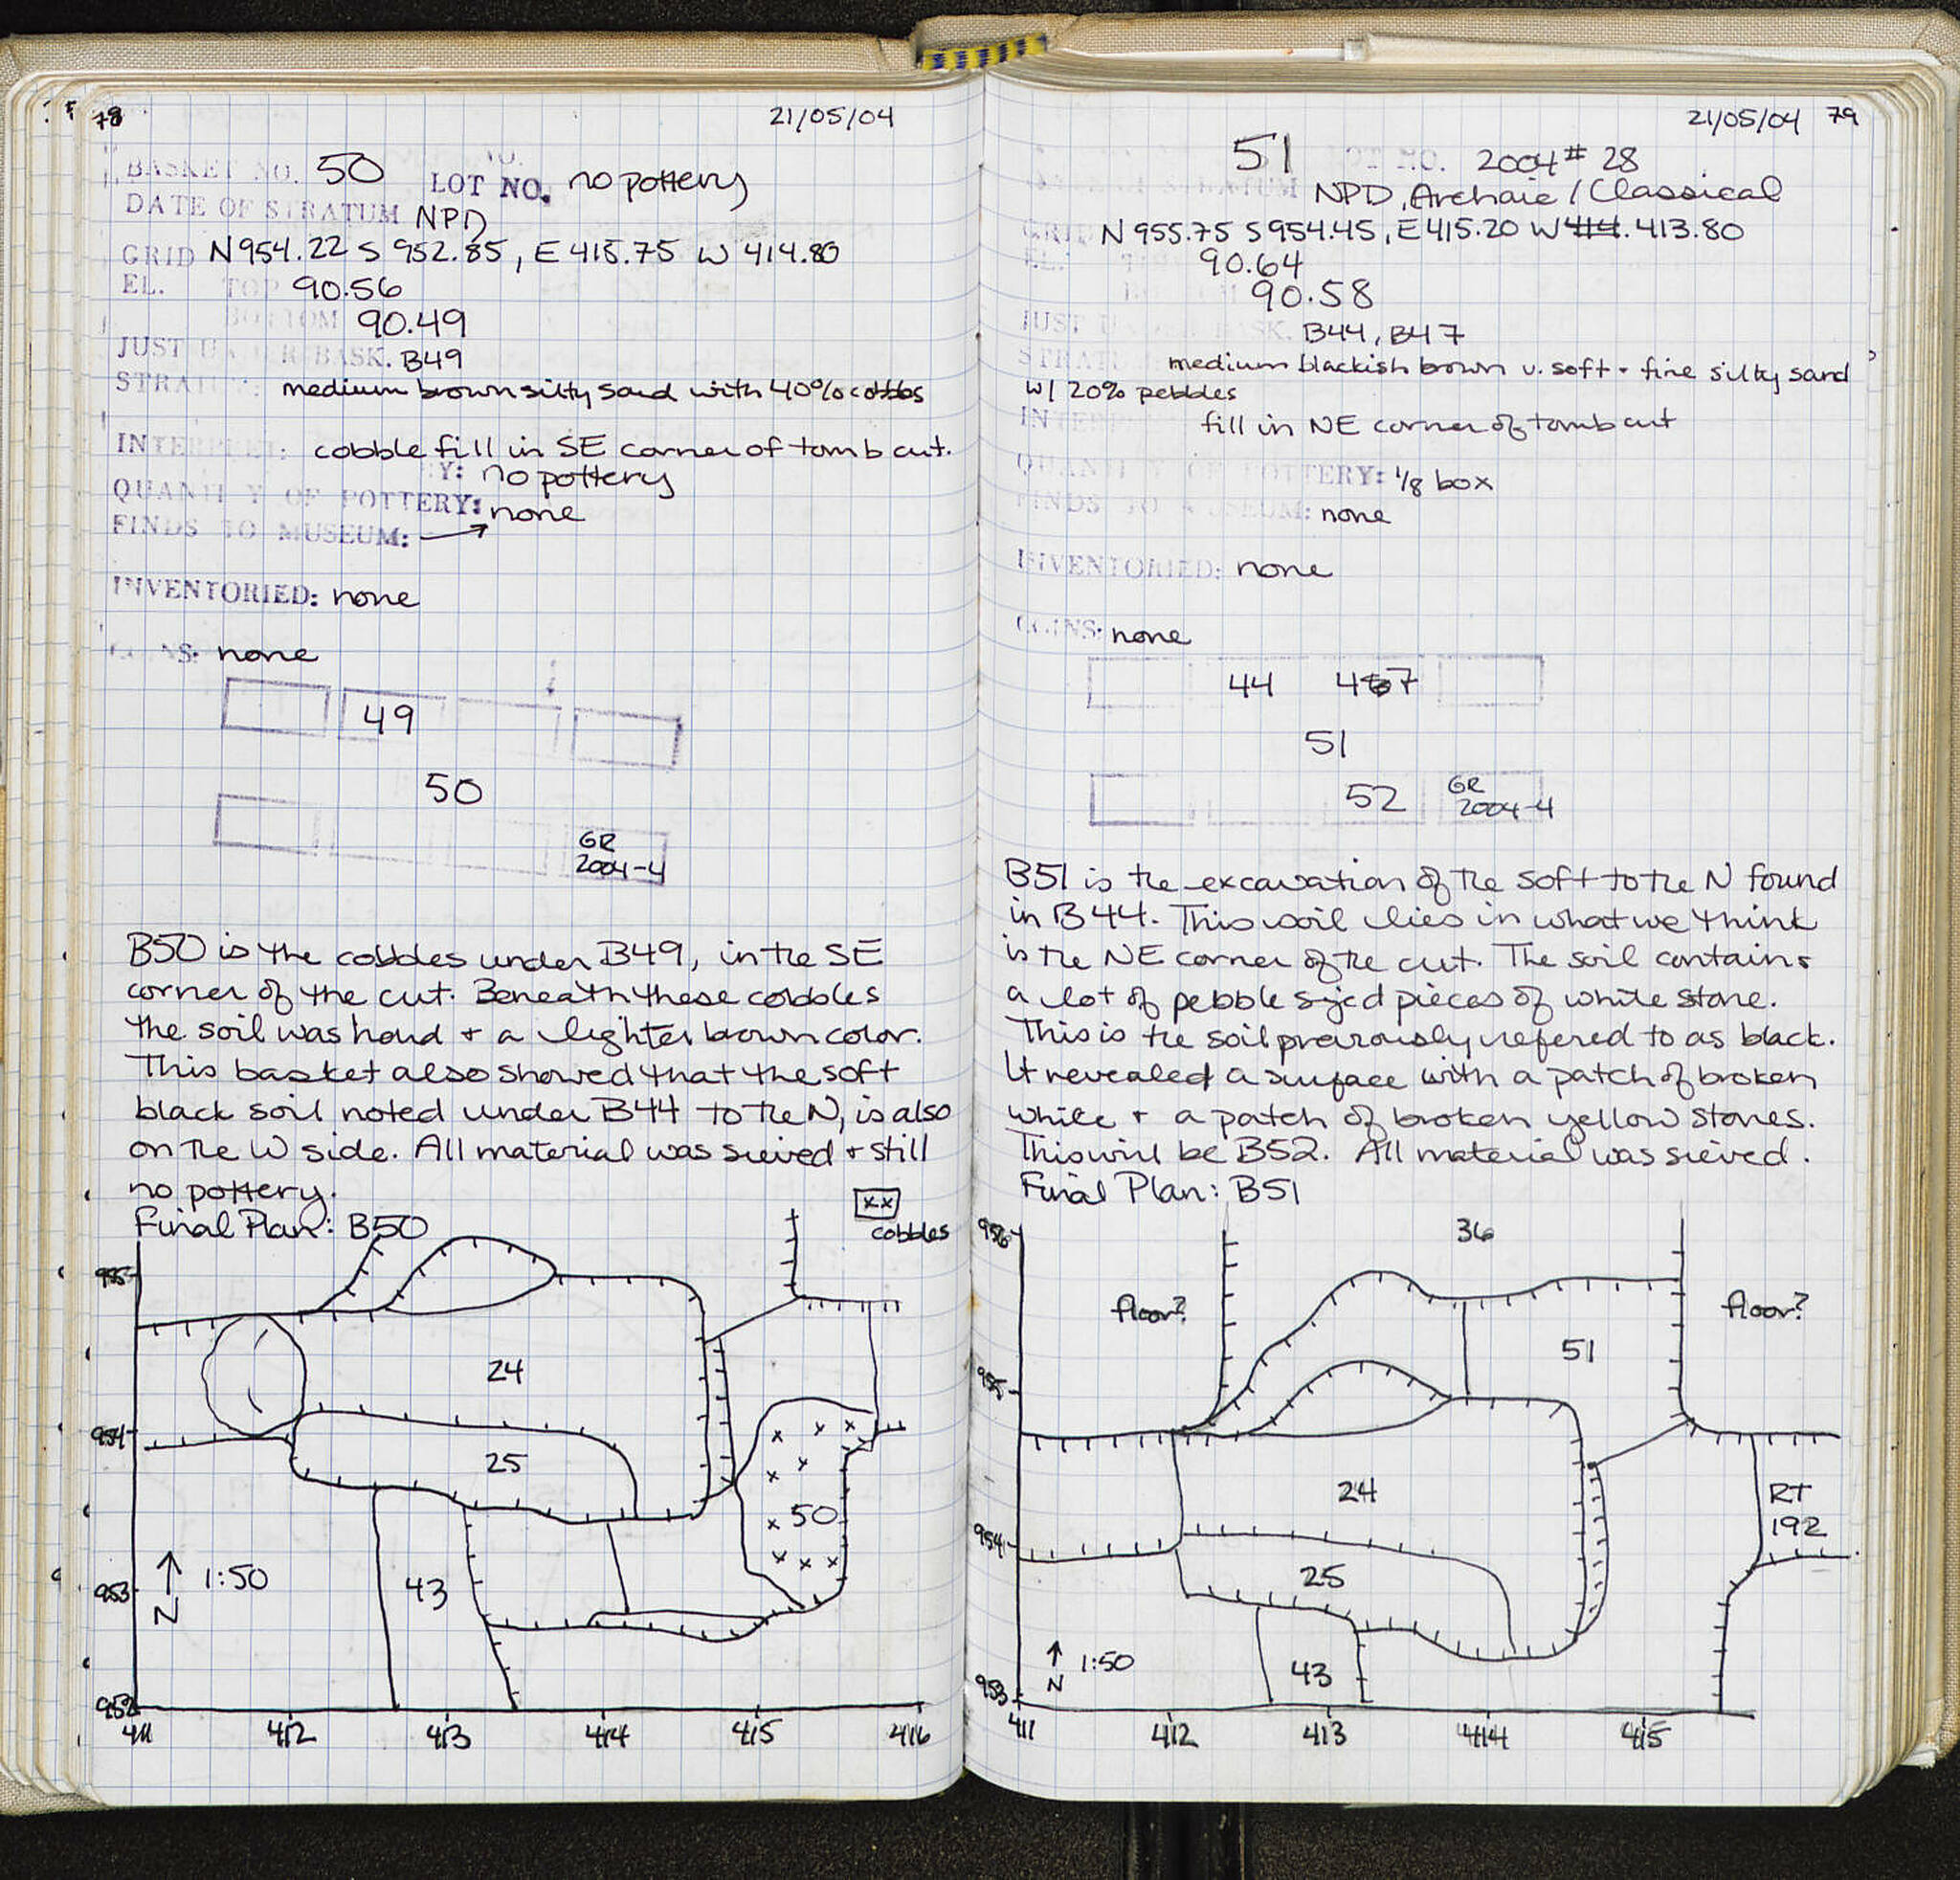 78 21/05/04
BASKET NO. 50 LOT NO. no pottery
DATE OF STRATUM NPD
GRID N954.22 S 952.85, E 415.75 W 414.80
EL. TOP 90.56
BOTTOM 90.49
JUST UNDER BASK. B49
STRATUM: medium brown silty sand with 40% cobbles
INTERPRET: cobble fill in SE corner of tomb cut.
Y: no pottery
QUANTITY OF POTTERY: none
FINDS TO MUSEUM: →
INVENTORIED: none
COINS: none
49
50
GR
2004-4
B50 is the cobbles under B49, in the SE
corner of the cut. Beneath these cobbles
the soil was hard + a lighter brown color.
This basket also showed that the soft
black soil noted under B44 to the N, is also
on the W side. All material was sieved + still
no pottery.
Final Plan: B50
xx
cobbles
955
24
954
25
50
↑ 1:50
N
953
43
952
411 412 413 414 415 416
21/05/04 79
51 LOT NO. 2004# 28
DATE OF STRATUM NPD, Archaic / Classical
GRID N 955.75 S 954.45, E 415.20 W 414. 413.80
EL. TOP 90.64
BOTTOM 90.58
JUST UNDER BASK. B44, B47
STRATUM medium blackish brown v. soft - fine silty sand
w/ 20% pebbles
INTERPRET fill in NE corner of tomb cut
QUANTITY OF POTTERY: 1/8 box
FINDS TO MUSEUM: none
INVENTORIED: none
COINS: none
44 47
51
52 GR
2004-4
B51 is the excavation of the soft to the N found
in B44. This soil lies in what we think
is the NE corner of the cut. The soil contains
a lot of pebble sized pieces of white stone.
This is the soil previously refered to as black.
It revealed a surface with a patch of broken
white + a patch of broken yellow stones.
This will be B52. All material was sieved.
Final Plan: B51
956
36
floor? floor?
51
955
24
RT
192
954
25
↑ 1:50
N
43
953
411 412 413 414 415